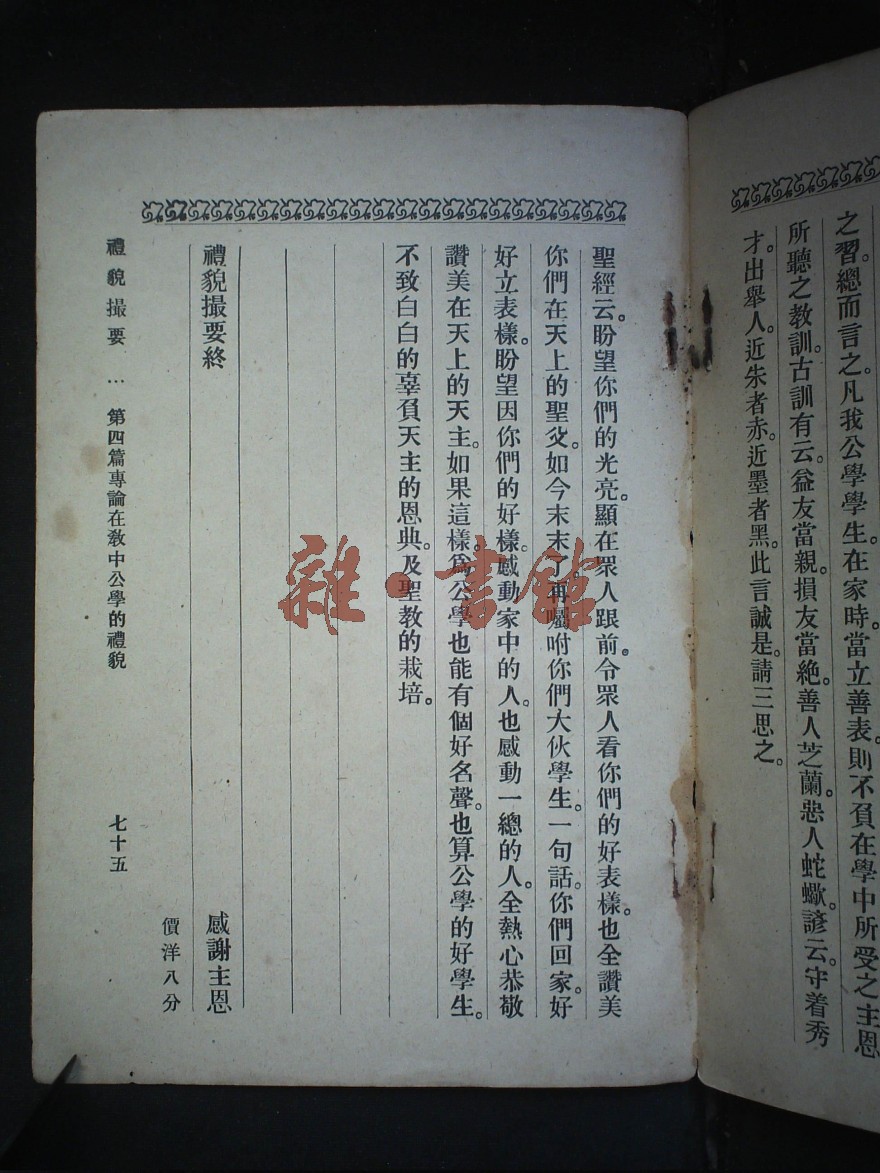 之習。總而言之。凡我公學學生。在家時當立善表。則不負在學中所受之主恩
所聽之教訓。古訓有云。益友當親。損友當絕。善人芝蘭。惡人蛇蠍。諺云。守着秀
才。出舉人。近朱者赤。近墨者黑。此言誠是。請三思之。
聖經云。盼望你們的光亮。顯在眾人跟前。令眾人看你們的好表樣。也全讚美
你們在天上的聖父。如今末末了再囑咐你們大伙學生。一句話。你們回家。好
好立表樣。盼望因你們的好樣。感動家中的人。也感動一總的人。全熱心恭敬
讚美在天上的天主。如果這樣。為公學也能有個好名聲。也算公學的好學生。
不致白白的辜負天主的恩典。及聖教的栽培。
禮貌撮要終 感謝主恩
價洋八分
禮貌撮要 … 第四篇專論在教中公學的禮貌 七十五
雜·書館